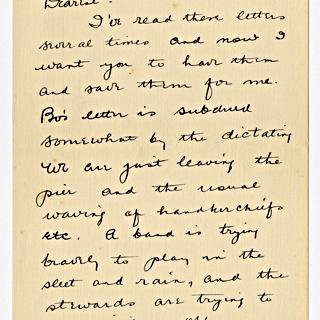 Dearest:
I've read these letters
several times and now I
want you to have them
and save them for me.
Bo's letter is subdued
somewhat by the dictating
We are just leaving the
pier and the usual
waving of handkerchiefs
etc. A band is trying
bravely to play in the
sleet and rain, and the
stewards are trying to